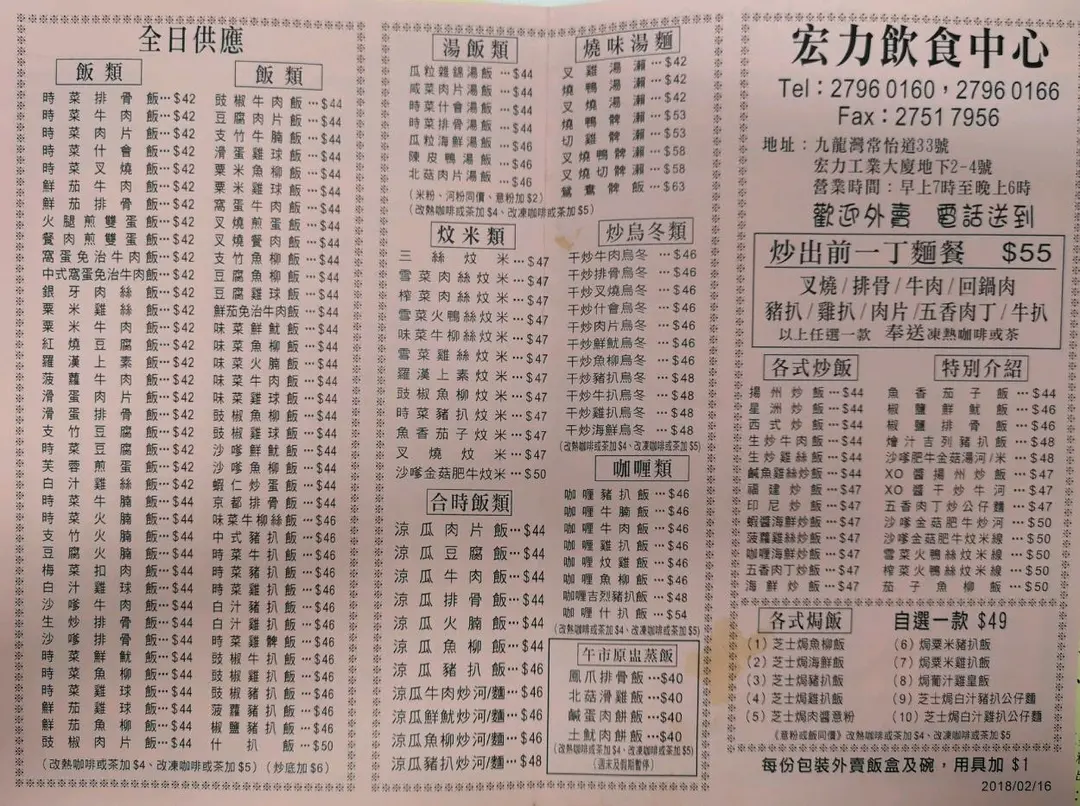 全日供應
飯類
時菜排骨飯…$42
時菜牛肉飯…$42
時菜肉片飯…$42
時菜什會飯…$42
時菜叉燒飯…$42
鮮茄牛肉飯…$42
鮮茄排骨飯…$42
火腿煎雙蛋飯…$42
餐肉煎雙蛋飯…$42
窩蛋免治牛肉飯…$42
中式窩蛋免治牛肉飯…$42
銀牙肉絲飯…$42
粟米雞絲飯…$42
粟米牛肉飯…$42
紅燒豆腐飯…$42
羅漢上素飯…$42
菠蘿牛肉飯…$42
滑蛋肉片飯…$42
滑蛋排骨飯…$42
支竹豆腐飯…$42
時菜豆腐飯…$42
芙蓉煎蛋飯…$42
白汁雞絲飯…$42
時菜牛腩飯…$44
時菜火腩飯…$44
支竹火腩飯…$44
豆腐火腩飯…$44
梅菜扣肉飯…$44
白汁雞球飯…$44
沙嗲牛肉飯…$44
生炒排骨飯…$44
沙嗲排骨飯…$44
時菜鮮魷飯…$44
時菜魚柳飯…$44
時菜雞球飯…$44
鮮茄雞球飯…$44
鮮茄魚柳飯…$44
豉椒肉片飯…$44
飯類
豉椒牛肉飯…$44
豆腐肉片飯…$44
支竹牛腩飯…$44
滑蛋雞球飯…$44
粟米魚柳飯…$44
粟米雞球飯…$44
窩蛋牛肉飯…$44
叉燒煎蛋飯…$44
叉燒餐肉飯…$44
支竹魚柳飯…$44
豆腐魚柳飯…$44
豆腐雞球飯…$44
鮮茄免治牛肉飯…$44
味菜鮮魷飯…$44
味菜魚柳飯…$44
味菜火腩飯…$44
味菜牛肉飯…$44
味菜雞球飯…$44
豉椒魚柳飯…$44
豉椒雞球飯…$44
沙嗲鮮魷飯…$44
沙嗲魚柳飯…$44
蝦仁炒蛋飯…$44
京都排骨飯…$44
味菜牛柳絲飯…$46
中式豬扒飯…$46
時菜牛扒飯…$46
時菜豬扒飯…$46
時菜雞扒飯…$46
白汁豬扒飯…$46
白汁雞扒飯…$46
時菜雞髀飯…$46
豉椒牛扒飯…$46
豉椒雞扒飯…$46
豉椒豬扒飯…$46
菠蘿豬扒飯…$46
椒鹽豬扒飯…$46
什扒飯…$50
（改熱咖啡或茶加$4、改凍咖啡或茶加$5）（炒底加$6）
湯飯類
瓜粒雜錦湯飯…$44
咸菜肉片湯飯…$44
時菜什會湯飯…$44
時菜排骨湯飯…$44
瓜粒海鮮湯飯…$46
陳皮鴨湯飯…$46
北菇肉片湯飯…$46
（米粉、河粉同價、意粉加$2）
（改熱咖啡或茶加$4、改凍咖啡或茶加$5）
燒味湯麵
叉雞湯瀨…$42
燒鴨湯瀨…$42
叉燒湯瀨…$42
燒鴨髀瀨…$53
切雞髀瀨…$53
叉燒鴨髀瀨…$58
叉燒切髀瀨…$58
鴛鴦髀飯…$63
炆米類
三絲炆米…$47
雪菜肉絲炆米…$47
榨菜肉絲炆米…$47
雪菜火鴨絲炆米…$47
味菜牛柳絲炆米…$47
雪菜雞絲炆米…$47
羅漢上素炆米…$47
豉椒魚柳炆米…$47
時菜豬扒炆米…$47
魚香茄子炆米…$47
叉燒炆米…$47
沙嗲金菇肥牛炆米…$50
炒烏冬類
干炒牛肉烏冬…$46
干炒排骨烏冬…$46
干炒叉燒烏冬…$46
干炒什會烏冬…$46
干炒肉片烏冬…$46
干炒鮮魷烏冬…$46
干炒魚柳烏冬…$46
干炒豬扒烏冬…$48
干炒牛扒烏冬…$48
干炒雞扒烏冬…$48
干炒海鮮烏冬…$48
（改熱咖啡或茶加$4、改凍咖啡或茶加$5）
合時飯類
涼瓜肉片飯…$44
涼瓜豆腐飯…$44
涼瓜牛肉飯…$44
涼瓜排骨飯…$44
涼瓜火腩飯…$44
涼瓜魚柳飯…$44
涼瓜豬扒飯…$46
涼瓜牛肉炒河/麵…$46
涼瓜鮮魷炒河/麵…$46
涼瓜魚柳炒河/麵…$46
涼瓜豬扒炒河/麵…$48
咖喱類
咖喱豬扒飯…$46
咖喱牛腩飯…$46
咖喱牛肉飯…$46
咖喱雞扒飯…$46
咖喱炆雞飯…$46
咖喱魚柳飯…$46
咖喱吉烈豬扒飯…$48
咖喱什扒飯…$54
（改熱咖啡或茶加$4、改凍咖啡或茶加$5）
午市原盅蒸飯
鳳爪排骨飯…$40
北菇滑雞飯…$40
鹹蛋肉餅飯…$40
土魷肉餅飯…$40
（改熱咖啡或茶加$4、改凍咖啡或茶加$5）
（週末及假期暫停）
宏力飲食中心
Tel：2796 0160，2796 0166
Fax：2751 7956
地址：九龍灣常怡道33號
宏力工業大廈地下2-4號
營業時間：早上7時至晚上6時
歡迎外賣 電話送到
炒出前一丁麵餐 $55
叉燒/排骨/牛肉/回鍋肉
豬扒/雞扒/肉片/五香肉丁/牛扒
以上任選一款 奉送凍熱咖啡或茶
各式炒飯
揚州炒飯…$44
星洲炒飯…$44
西式炒飯…$44
生炒牛肉飯…$44
生炒雞絲飯…$44
鹹魚雞絲炒飯…$44
福建炒飯…$47
印尼炒飯…$47
蝦醬海鮮炒飯…$47
菠蘿雞絲炒飯…$47
咖喱海鮮炒飯…$47
五香肉丁炒飯…$47
海鮮炒飯…$47
特別介紹
魚香茄子飯…$44
椒鹽鮮魷飯…$46
椒鹽排骨飯…$46
燴汁吉列豬扒飯…$48
沙嗲肥牛金菇湯河/米…$48
XO醬揚州炒飯…$47
XO醬干炒牛河…$47
五香肉丁炒公仔麵…$47
沙嗲金菇肥牛炒河…$50
沙嗲金菇肥牛炆米線…$50
雪菜火鴨絲炆米線…$50
榨菜火鴨絲炆米線…$50
茄子魚柳飯…$50
各式焗飯
自選一款 $49
（1）芝士焗魚柳飯
（2）芝士焗海鮮飯
（3）芝士焗豬扒飯
（4）芝士焗雞扒飯
（5）芝士焗肉醬意粉
（6）焗粟米豬扒飯
（7）焗粟米雞扒飯
（8）焗葡汁雞皇飯
（9）芝士焗白汁豬扒公仔麵
（10）芝士焗白汁雞扒公仔麵
（意粉或飯同價）改熱咖啡或茶加$4、改凍咖啡或茶加$5
每份包裝外賣飯盒及碗，用具加 $1
2018/02/16